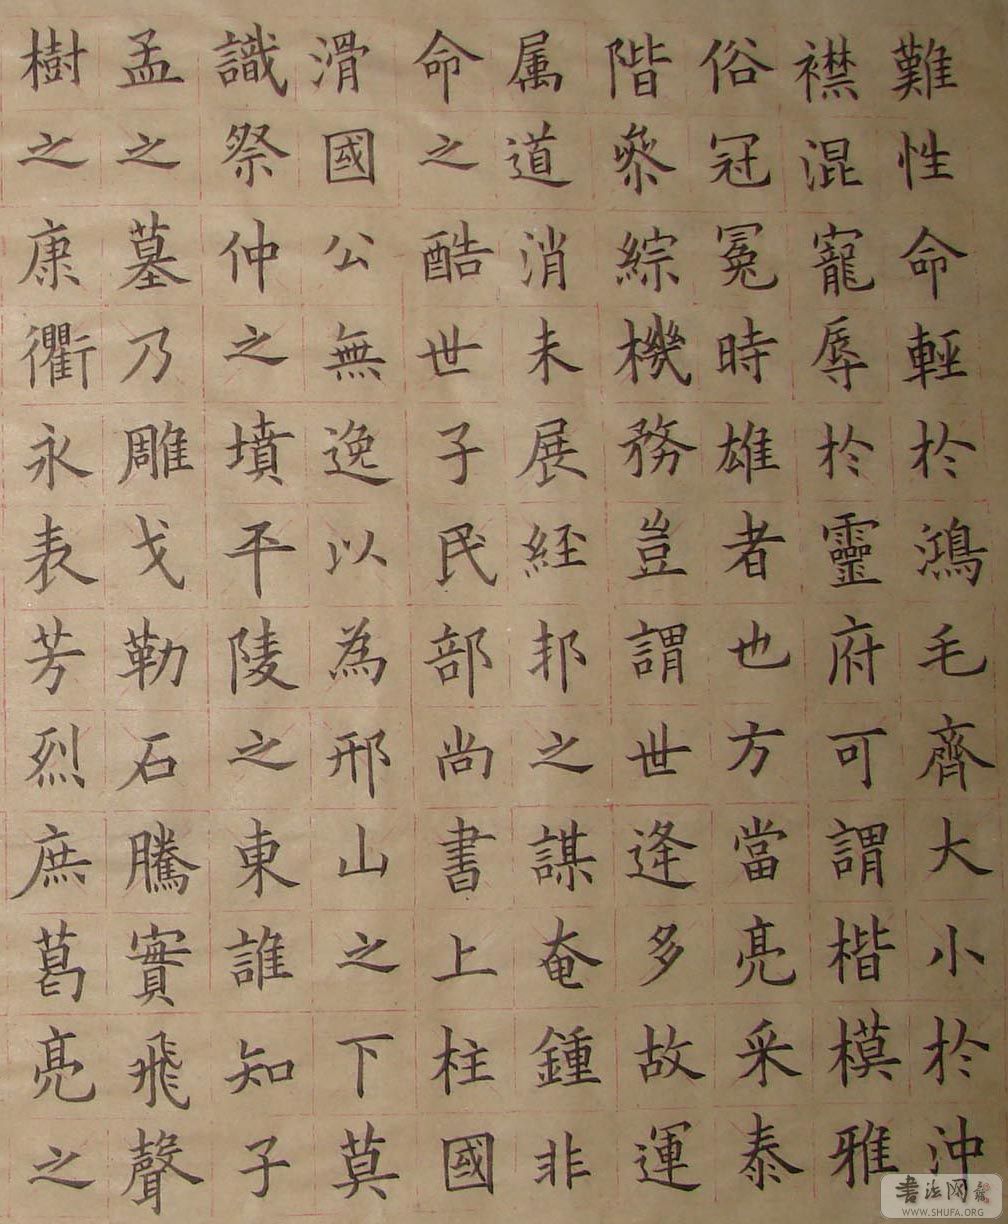 難性命輕於鴻毛齊大小於沖
襟混寵辱於靈府可謂楷模雅
俗冠冕時雄者也方當亮采泰
階叅綜機務豈謂世逄多故運
属道消未展經邦之謀奄鍾非
命之酷世子民部尚書上柱國
滑國公無逸以為邢山之下莫
識祭仲之墳平陵之東誰知子
孟之墓乃雕戈勒石騰實飛聲
樹之康衢永表芳烈庶葛亮之
书法网
WWW.SHUFA.ORG